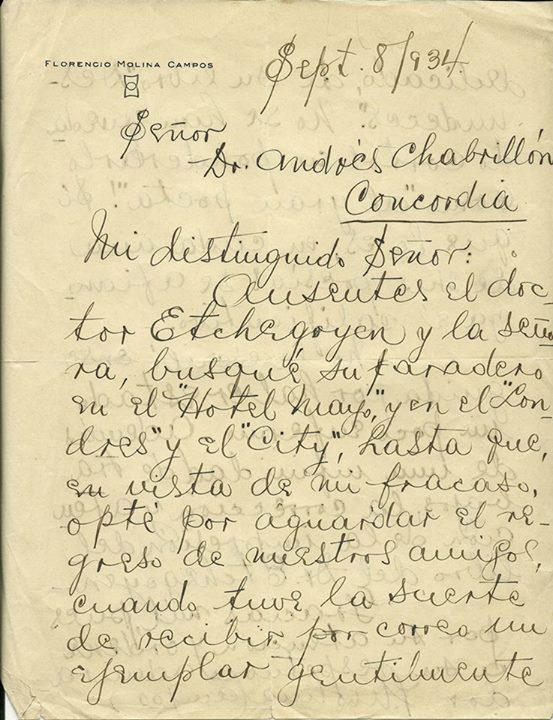 FLORENCIO MOLINA CAMPOS
Sept. 8/934.
Señor
Dr. Andrés Chabrillón
Concordia
Mi distinguido Señor:
Ausentes el doc
tor Etchegoyen y la seño
ra, busqué su paradero
en el "Hotel Mayo," y en el "Lon-
dres" y el "City", hasta que,
en vista de mi fracaso,
opté por aguardar el re-
greso de nuestros amigos,
cuando tuve la suerte
de recibir por correo un
ejemplar gentilmente